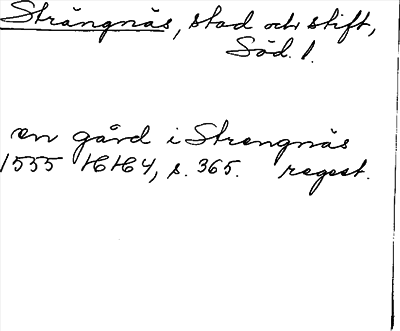 Strängnäs, stad och stift,
Söd. 1.
en gård i Strengnäs
1555 HH 4, s. 365. regest.